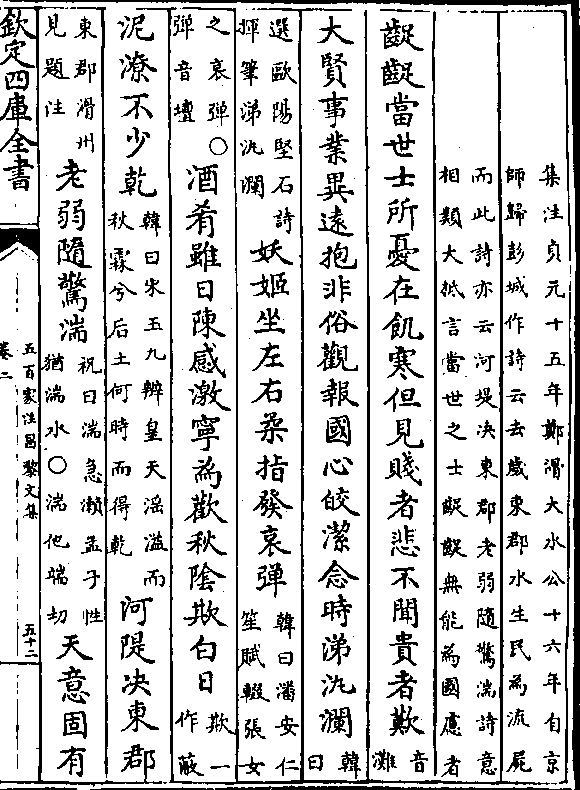 集注貞元十五年鄭滑大水公十六年自京
師歸彭城作詩云去歲東郡水生民為流屍
而此詩亦云河堤决東郡老弱隨驚湍詩意
相類大抵言當世之士齪齪無能為國慮者
齪齪當世士所憂在飢寒但見賤者悲不聞貴者歎音灘
大賢事業異遠抱非俗觀報國心皎潔念時涕汍瀾韓曰
選歐陽堅石詩揮筆涕汍瀾妖姬坐左右柔指發哀彈韓曰潘安仁笙賦輟張女
之哀彈○彈音壇酒肴雖日陳感激寧為歡秋陰欺白日欺一作蔽
泥潦不少乾韓曰宋玉九辨皇天滛溢而秋霖兮后土何時而得乾河隄决東郡
東郡滑州見題注老弱隨驚湍祝曰湍急瀨孟子性猶湍水○湍他端切天意固有
欽定四庫全書
五百家注昌黎文集
卷二
五十二